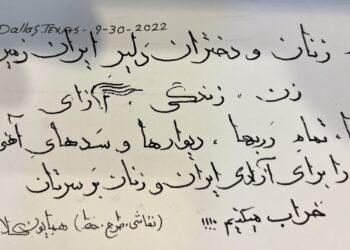 Dallas. Texas - 9-30-2022
زنان و دختران دلیر ایران زمین
زن . زندگی . آزادی
تمام دربها ، دیوارها و سدهای آهنی
را برای آزادی ایران و زنان بر سرتان
خراب میکنیم !!!!
(نقاشی، طرح، خط) همایون